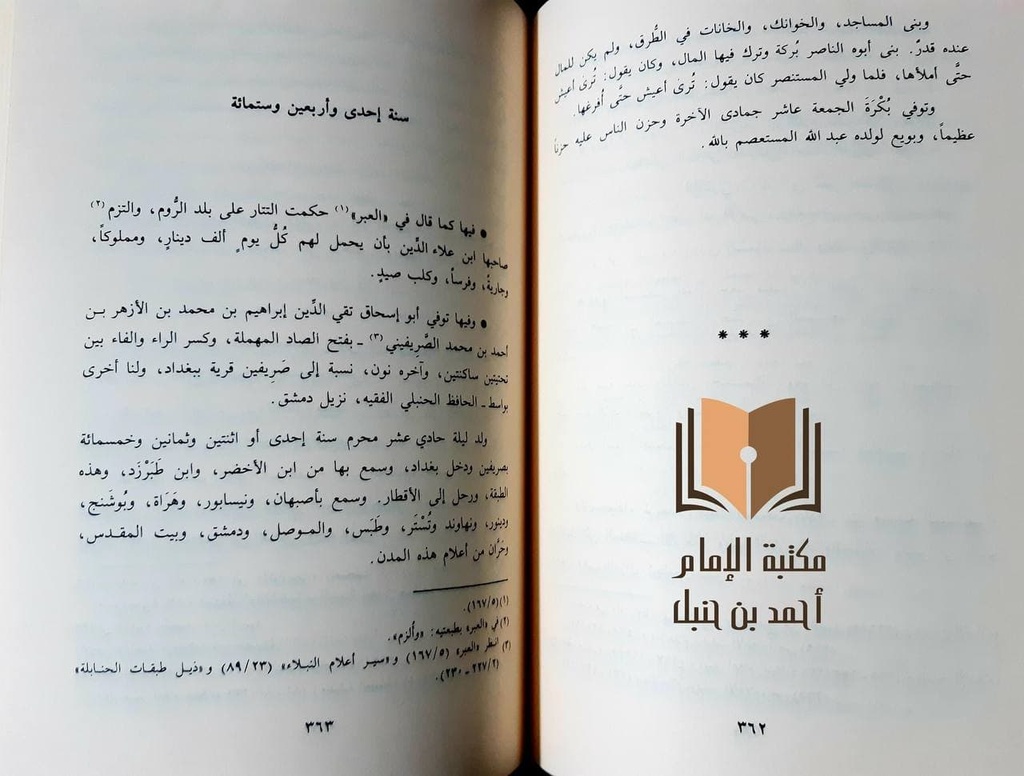 وبنى المساجد، والخوانك، والخانات في الطُّرق، ولم يكن للمال
عنده قدرٌ. بنى أبوه الناصر بُركة وترك فيها المال، وكان يقول: تُرى أعيش
حتَّى أملأها، فلما ولي المستنصر كان يقول: تُرى أعيش حتَّى أُفرغها.
وتوفي بُكْرَةَ الجمعة عاشر جمادى الآخرة وحزن الناس عليه حزناً
عظيماً، وبويع لولده عبد الله المستعصم بالله.
* * *
مكتبة الإمام
أحمد بن حنبل
٣٦٢
سنة إحدى وأربعين وستمائة
• فيها كما قال في «العبر»(١) حكمت التتار على بلد الرُّوم، والتزم(٢)
صاحبها ابن علاء الدِّين بأن يحمل لهم كُلُّ يومٍ ألف دينارٍ، ومملوكاً،
وجاريةً، وفرساً، وكلب صيدٍ.
• وفيها توفي أبو إسحاق تقي الدِّين إبراهيم بن محمد بن الأزهر بـن
أحمد بن محمد الصَّرِيفيني(٣) ـ بفتح الصاد المهملة، وكسر الراء والفاء بين
تحتيتين ساكنتين، وآخره نون، نسبة إلى صَرِيفين قرية ببغداد، ولنا أخرى
بواسط ـ الحافظ الحنبلي الفقيه، نزيل دمشق.
ولد ليلة حادي عشر محرم سنة إحدى أو اثنتين وثمانين وخمسمائة
بصريفين ودخل بغداد، وسمع بها من ابن الأخضر، وابن طَبَرْزَد، وهذه
الطبقة، ورحل إلى الأقطار. وسمع بأصبهان، ونيسابور، وهَرَاة، وبُوشَنج،
ودينور، ونهاوند وتُسْتَر، وطَبَس، والمـوصل، ودمشق، وبيت المقـدس،
وحَرَّان من أعلام هذه المدن.
(١) (١٦٧/٥).
(٢) في «العبر» بطبعتيه: «وألزم».
(٣) انظر «العبر» (١٦٧/٥) و«سيـر أعلام النبـلاء» (٨٩/٢٣) و«ذيـل طبقـات الحنابلة»
(٢٢٧/٢ ـ ٢٣٠).
٣٦٣